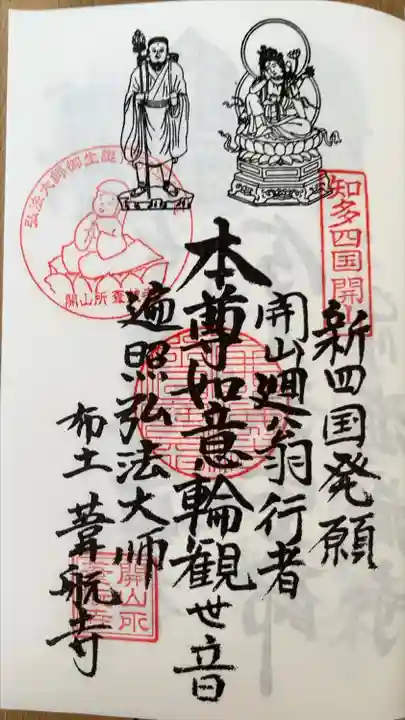 新四国発願
開山廻翁行者
本尊如意輪観世音
遍照弘法大师
布土 葦航寺
知多四国開
弘法大師御生誕
開山所葦航寺
開山所